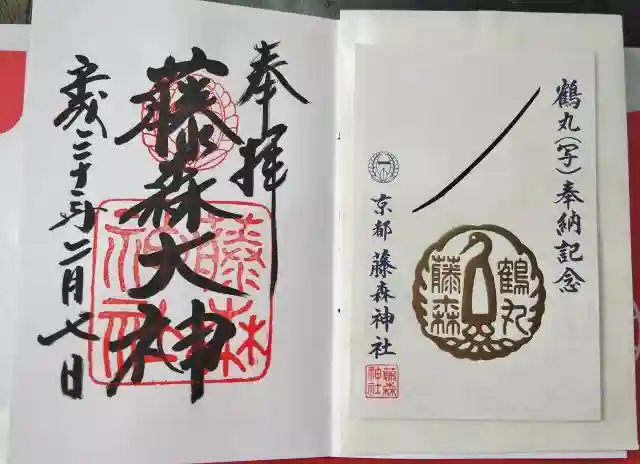 鶴丸(写)奉納記念
鶴丸
藤森
一
京都 藤森神社
藤森
神社
奉拝
藤森大神
藤森
神社
平成三十年二月七日